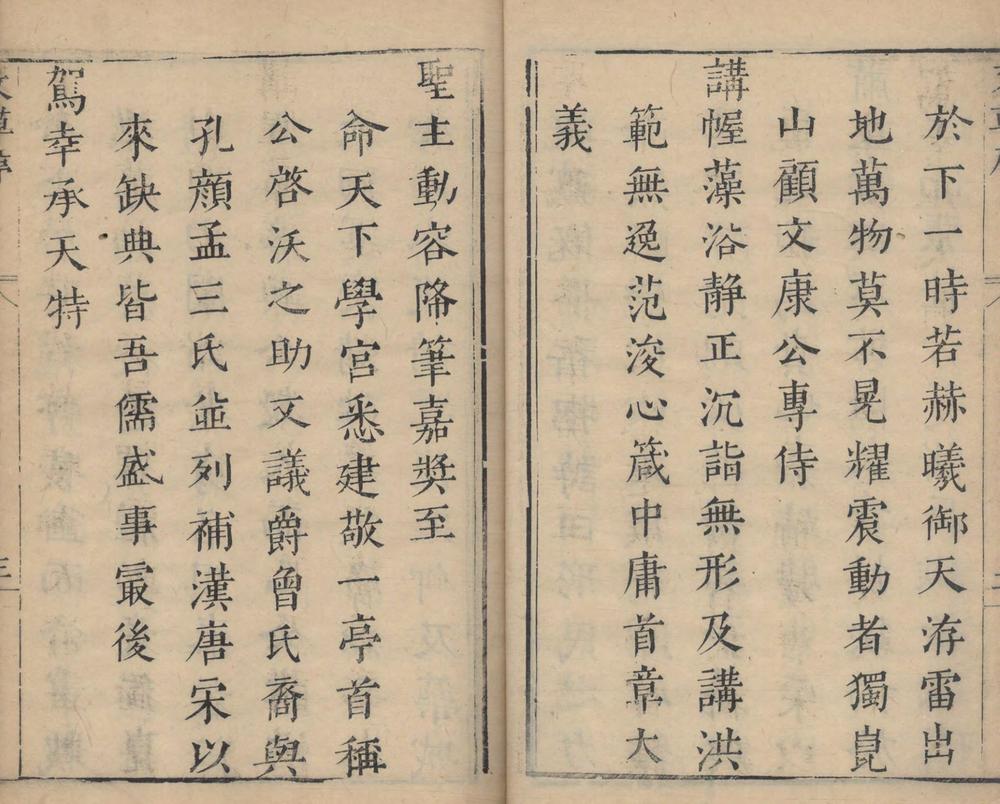 於下一時若赫曦御天洊雷出
地萬物莫不晃耀震動者獨崑
山顧文康公專侍
講幄藻浴靜正沉詣無形及講洪
範無逸范浚心箴中庸首章大
義
聖主動容降筆嘉奬至
命天下學宮悉建敬一亭首稱
公啓沃之助文議爵曾氏裔與
孔顔孟三氏並列補漢唐宋以
來缺典皆吾儒盛事最後
駕幸承天特